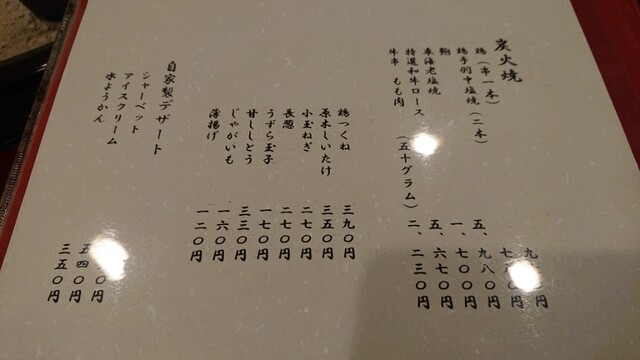 炭火焼
鶏（串一本）
鶏手羽中塩焼（二本）
鮑 五、九八〇円
車海老塩焼 一、七〇〇円
特選和牛ロース（五十グラム） 五、六七〇円
牛串 もも肉 二、二三〇円
鶏つくね 三九〇円
原木しいたけ 三五〇円
小玉ねぎ 二七〇円
長葱 二七〇円
うずら玉子 一七〇円
甘ししとう 三三〇円
じゃがいも 一六〇円
薄揚げ 一二〇円
自家製デザート
シャーベット
アイスクリーム 五四〇円
水ようかん 三五〇円